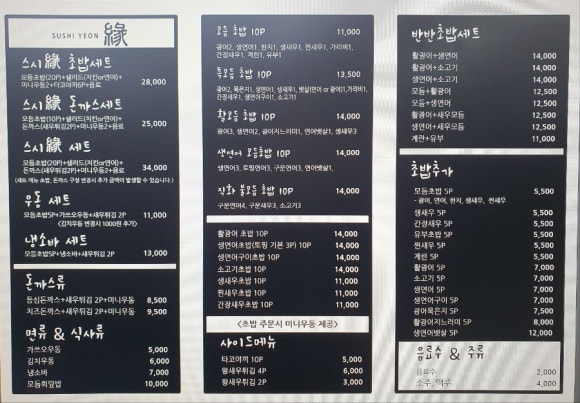 SUSHI YEON 緣
스시緣 초밥세트
모듬초밥(20P)+샐러드(치킨or연어)+
미니우동2+타코야끼6P+음료
28,000
스시緣 돈까스세트
모듬초밥(10P)+샐러드(치킨or연어)+
돈까스(새우튀김2P)+미니우동2+음료
25,000
스시緣 세트
모듬초밥(20P)+샐러드(치킨or연어)+
돈까스(새우튀김2P)+미니우동2+음료
34,000
(세트 메뉴 초밥, 돈까스 구성 변경시 추가 금액이 발생할 수 있습니다.)
우동 세트
모듬초밥5P+가쓰오우동+새우튀김 2P 11,000
(김치우동 변경시 1000원 추가)
냉소바 세트
모듬초밥5P+냉소바+새우튀김 2P 13,000
돈까스류
등심돈까스+새우튀김 2P+미니우동 8,500
치즈돈까스+새우튀김 2P+미니우동 9,500
면류 & 식사류
가쓰오우동 5,000
김치우동 6,000
냉소바 7,000
모듬회덮밥 10,000
모듬 초밥 10P 11,000
광어2, 생연어1, 한치1, 생새우1, 찐새우1, 가리비1,
간장새우1, 계란1, 유부1
특모듬 초밥 10P 13,500
광어2, 묵은지1, 생연어1, 생새우1, 뱃살(연어 or 광어)1,가리비1,
간장새우1, 생연어구이1, 소고기1
활모듬 초밥 10P 14,000
광어3, 생연어2, 광어지느러미1, 연어뱃살1, 생새우3
생연어 모듬초밥 10P 14,000
생연어3, 토핑연어3, 구운연어3, 연어뱃살1,
직화 불모듬 초밥 10P 14,000
구운연어4, 구운새우3, 소고기3
활광어 초밥 10P 14,000
생연어초밥(토핑 기본 3P) 10P 14,000
생연어구이초밥 10P 14,000
소고기초밥 10P 14,000
생새우초밥 10P 11,000
찐새우초밥 10P 11,000
간장새우초밥 10P 11,000
<초밥 주문시 미니우동 제공>
사이드메뉴
타코야끼 10P 5,000
왕새우튀김 4P 6,000
왕새우튀김 2P 3,000
반반초밥세트
활광어+생연어 14,000
활광어+소고기 14,000
생연어+소고기 14,000
모듬+활광어 12,500
모듬+생연어 12,500
활광어+새우모듬 12,500
생연어+새우모듬 12,500
계란+유부 11,000
초밥추가
모듬초밥 5P 5,500
- 광어, 연어, 한치, 생새우, 찐새우
생새우 5P 5,500
간장새우 5P 5,500
유부초밥 5P 5,500
찐새우 5P 5,500
계란 5P 5,500
활광어 5P 7,000
생연어 5P 7,000
소고기 5P 7,000
생연어구이 5P 7,000
광어묵은지 5P 7,500
활광어지느러미 5P 8,000
생연어뱃살 5P 12,000
음료수 & 주류
음료수 2,000
소주, 맥주 4,000